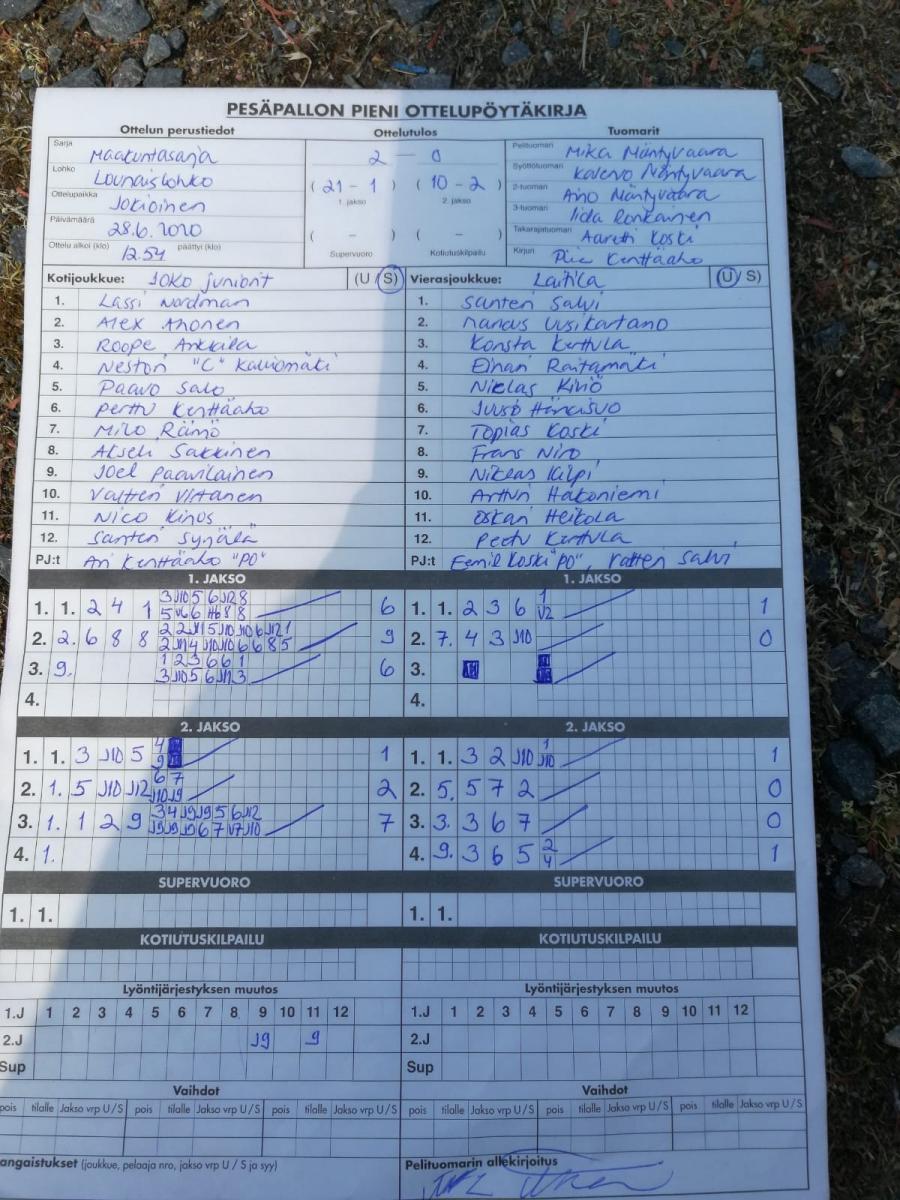 PESÄPALLON PIENI OTTELUPÖYTÄKIRJA
Ottelun perustiedot Ottelutulos Tuomarit
Sarja Maakuntasarja 2 – 0 Pelituomari Mika Mäntyvaara
Lohko Lounaislohko ( 21 - 1 ) ( 10 - 2 ) Syöttötuomari Kalervo Mäntyvaara
Ottelupaikka Jokioinen 1. jakso 2. jakso 2-tuomari Aino Mäntyvaara
Päivämäärä 28.6.2020 3-tuomari Iida Ronkainen
( – ) ( – ) Takarajatuomari Aaretti Koski
Ottelu alkoi (klo) 12.54 päättyi (klo) Supervuoro Kotiutuskilpailu Kirjuri Piia Kenttäaho
Kotijoukkue: JoKo juniorit (U / S) Vierasjoukkue: Laitila (U / S)
1. Lassi Nordman 1. Santeri Salvi
2. Alex Ahonen 2. Marcus Uusikartano
3. Roope Ankkila 3. Konsta Kerttula
4. Nestori "C" Kalliomäki 4. Einari Raitamäki
5. Paavo Salo 5. Niklas Kiviö
6. Perttu Kenttäaho 6. Juuso
7. Milo Rämö 7. Topias Koski
8. Akseli Sakkinen 8. Frans Niro
9. Joel Paavilainen 9. Niklas Kilpi
10. Valtteri Virtanen 10. Artturi Hakoniemi
11. Nico Kinos 11. Oskari Heikola
12. Santeri Syrjälä 12. Peetu Kerttula
PJ:t Ari Kenttäaho "PO" PJ:t Eemil Koski "PO", Valtteri Salvi
1. JAKSO 1. JAKSO
1. 1. 2 4 1 6 1. 1. 2 3 6 1 V2 1
2. 2. 6 8 8 9 2. 7. 4 3 J10 0
3. 9. 1 2 3 6 6 1 6 3.
4. 4.
2. JAKSO 2. JAKSO
1. 1. 3 J10 5 4 9 1 1. 1. 3 2 J10 1 J10 1
2. 1. 5 J10 J12 6 7 J10 J9 2 2. 5. 5 7 2 0
3. 1. 1 2 9 7 3. 3. 3 6 7 0
4. 1. 4. 9. 3 6 5 2 4 1
SUPERVUORO SUPERVUORO
1. 1. 1. 1.
KOTIUTUSKILPAILU KOTIUTUSKILPAILU
Lyöntijärjestyksen muutos Lyöntijärjestyksen muutos
1.J 1 2 3 4 5 6 7 8 9 10 11 12 1.J 1 2 3 4 5 6 7 8 9 10 11 12
2.J J9 9 2.J
Sup Sup
Vaihdot Vaihdot
pois tilalle Jakso vrp U / S pois tilalle Jakso vrp U / S pois tilalle Jakso vrp U / S pois tilalle Jakso vrp U / S pois tilalle Jakso vrp U / S pois tilalle Jakso vrp U / S
angaistukset (joukkue, pelaaja nro, jakso vrp U / S ja syy) Pelituomarin allekirjoitus